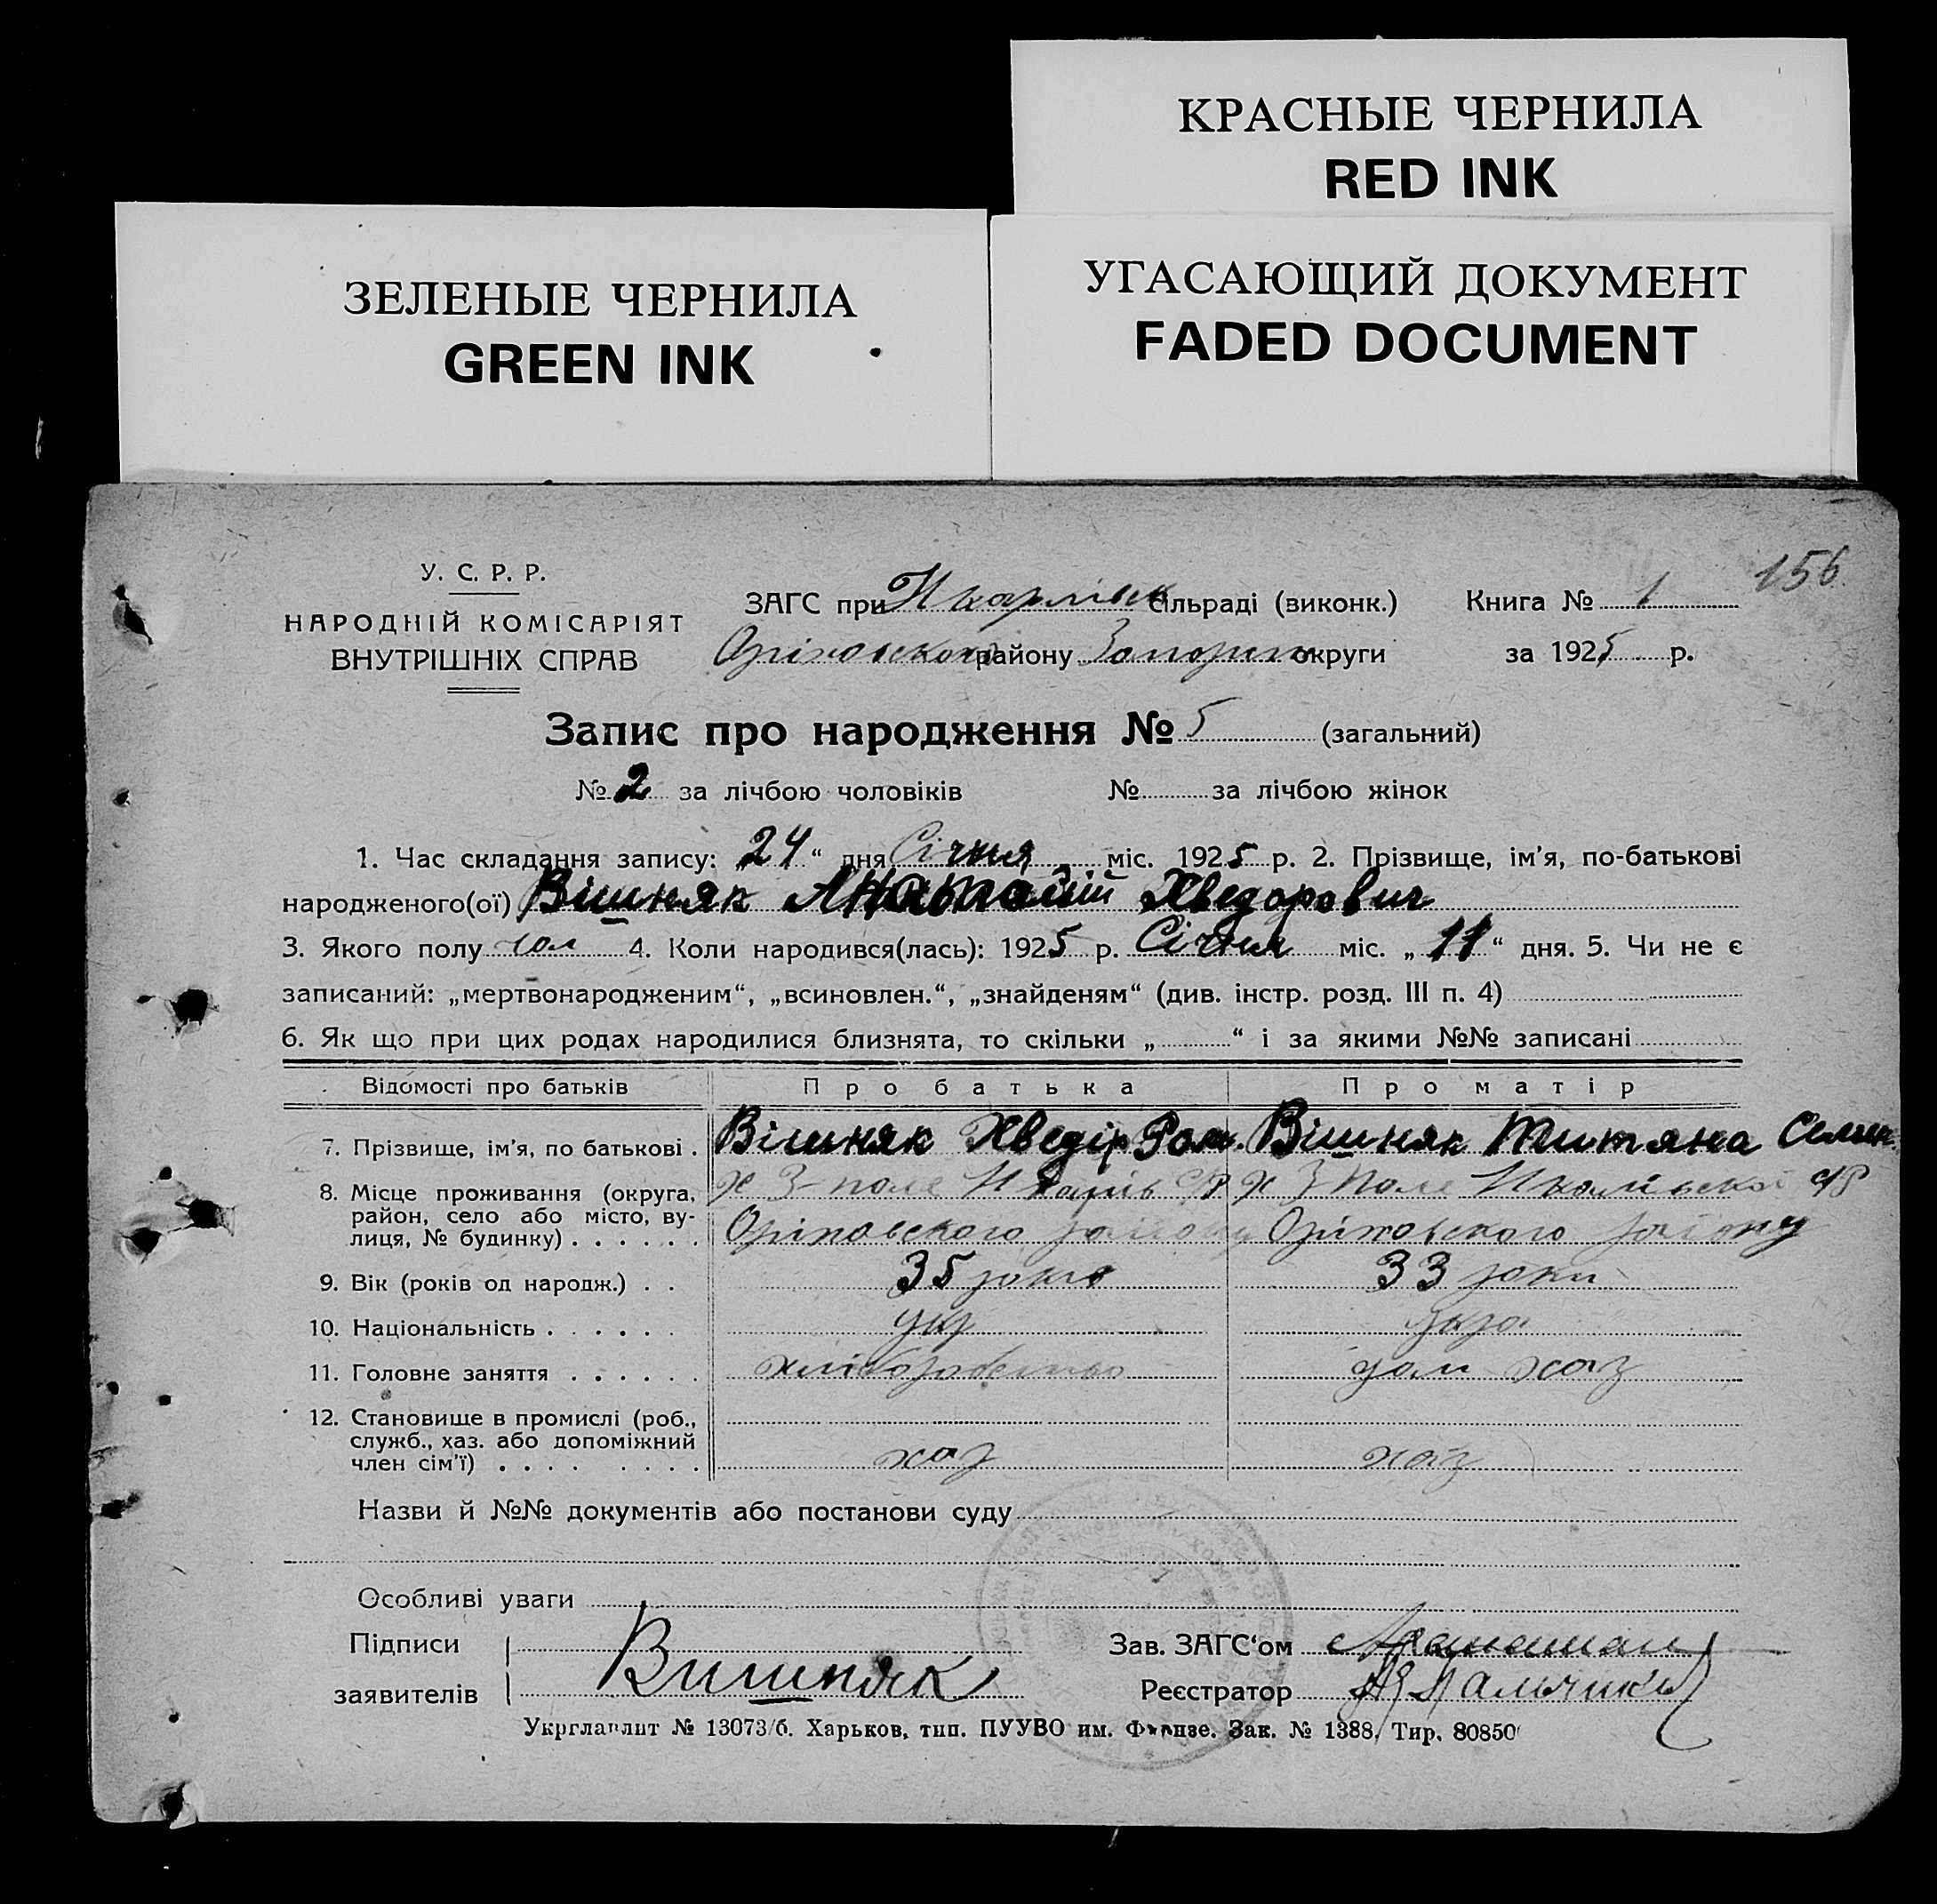 КРАСНЫЕ ЧЕРНИЛА
RED INK
ЗЕЛЕНЫЕ ЧЕРНИЛА
GREEN INK
УГАСАЮЩИЙ ДОКУМЕНТ
FADED DOCUMENT
156
У. С. Р. Р.
НАРОДНІЙ КОМІСАРІЯТ
ВНУТРІШНІХ СПРАВ
ЗАГС при Сільраді (виконк.) Книга № 1
Оріховского району округи за 1925 р.
Запис про народження № 5 (загальний)
№ 2 за лічбою чоловіків № за лічбою жінок
1. Час складання запису: „24“ дня Січня міс. 1925 р. 2. Прізвище, ім'я, по-батькові
народженого(ої) Вішняк Анатолій Хведорович
3. Якого полу чол 4. Коли народився(лась): 1925 р. Січня міс. „11“ дня. 5. Чи не є
записаний: „мертвонародженим“, „всиновлен.“, „знайденям“ (див. інстр. розд. III п. 4)
6. Як що при цих родах народилися близнята, то скільки „ “ і за якими №№ записані
Відомості про батьків Про батька Про матір
7. Прізвище, ім'я, по батькові . Вішняк Хведір Ром. Вішняк Титяна Семен.
8. Місце проживання (округа, х 3-поле С/Р х 3 Поле С/Р
район, село або місто, ву-
лиця, № будинку) . . . . . . Оріховского району Оріховского району
9. Вік (років од народж.) . . 35 років 33 роки
10. Національність . . . . . . укр укра
11. Головне заняття . . . . . . хліборобство дом хаз
12. Становище в промислі (роб.,
служб., хаз. або допоміжний
член сім'ї) . . . . . . . . хаз хаз
Назви й №№ документів або постанови суду
Особливі уваги
Підписи
заявителів Вишняк
Зав. ЗАГС‘ом
Реєстратор
Укрглавлит № 13073/б. Харьков, тип. ПУУВО им. Фрунзе. Зак. № 1388. Тир. 80850